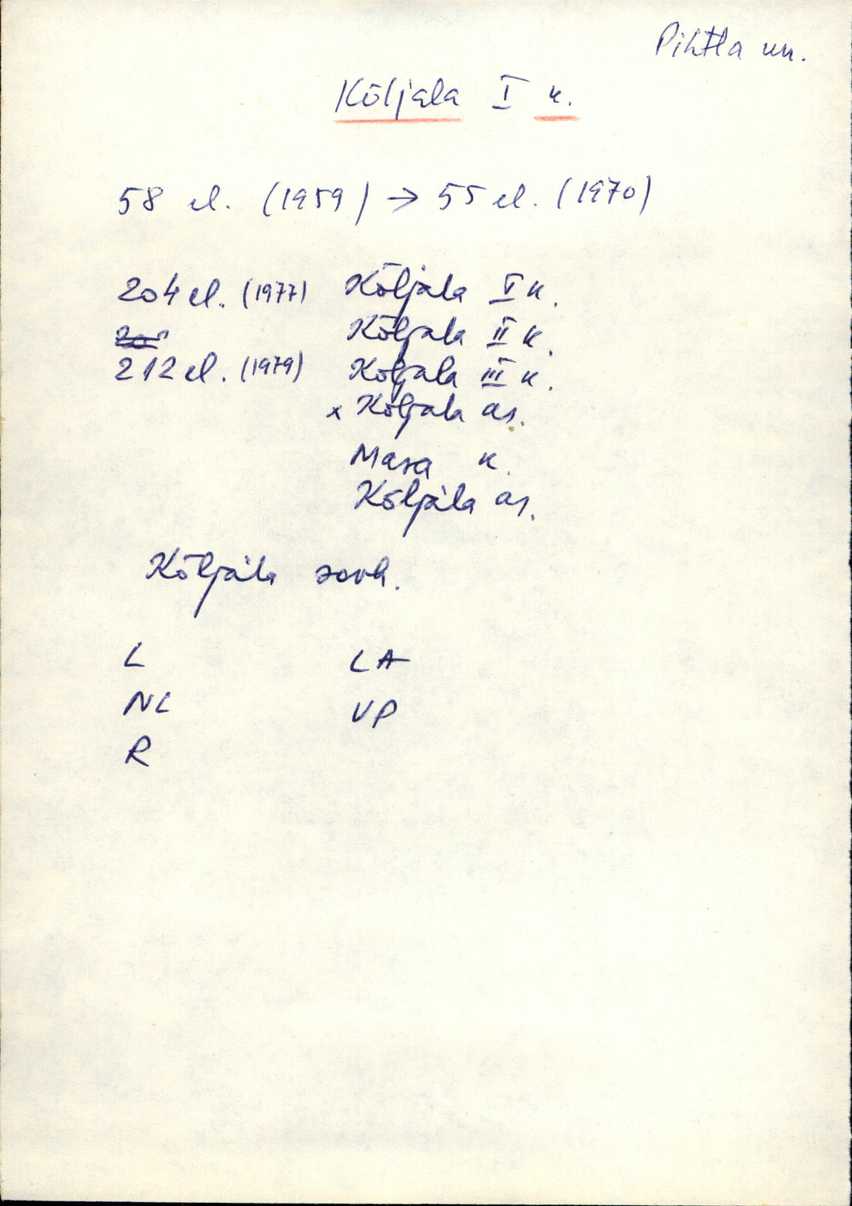 Pihtla kn.
Kõljala I k.
58 el. (1959) → 55 el. (1970)
204 el. (1977) Kõljala I k.
Kõljala II k.
212 el. (1979) Kõljala III k.
x Kõljala as.
Masa k.
Kõljala as.
Kõljala sovh.
L LA
NL VP
R